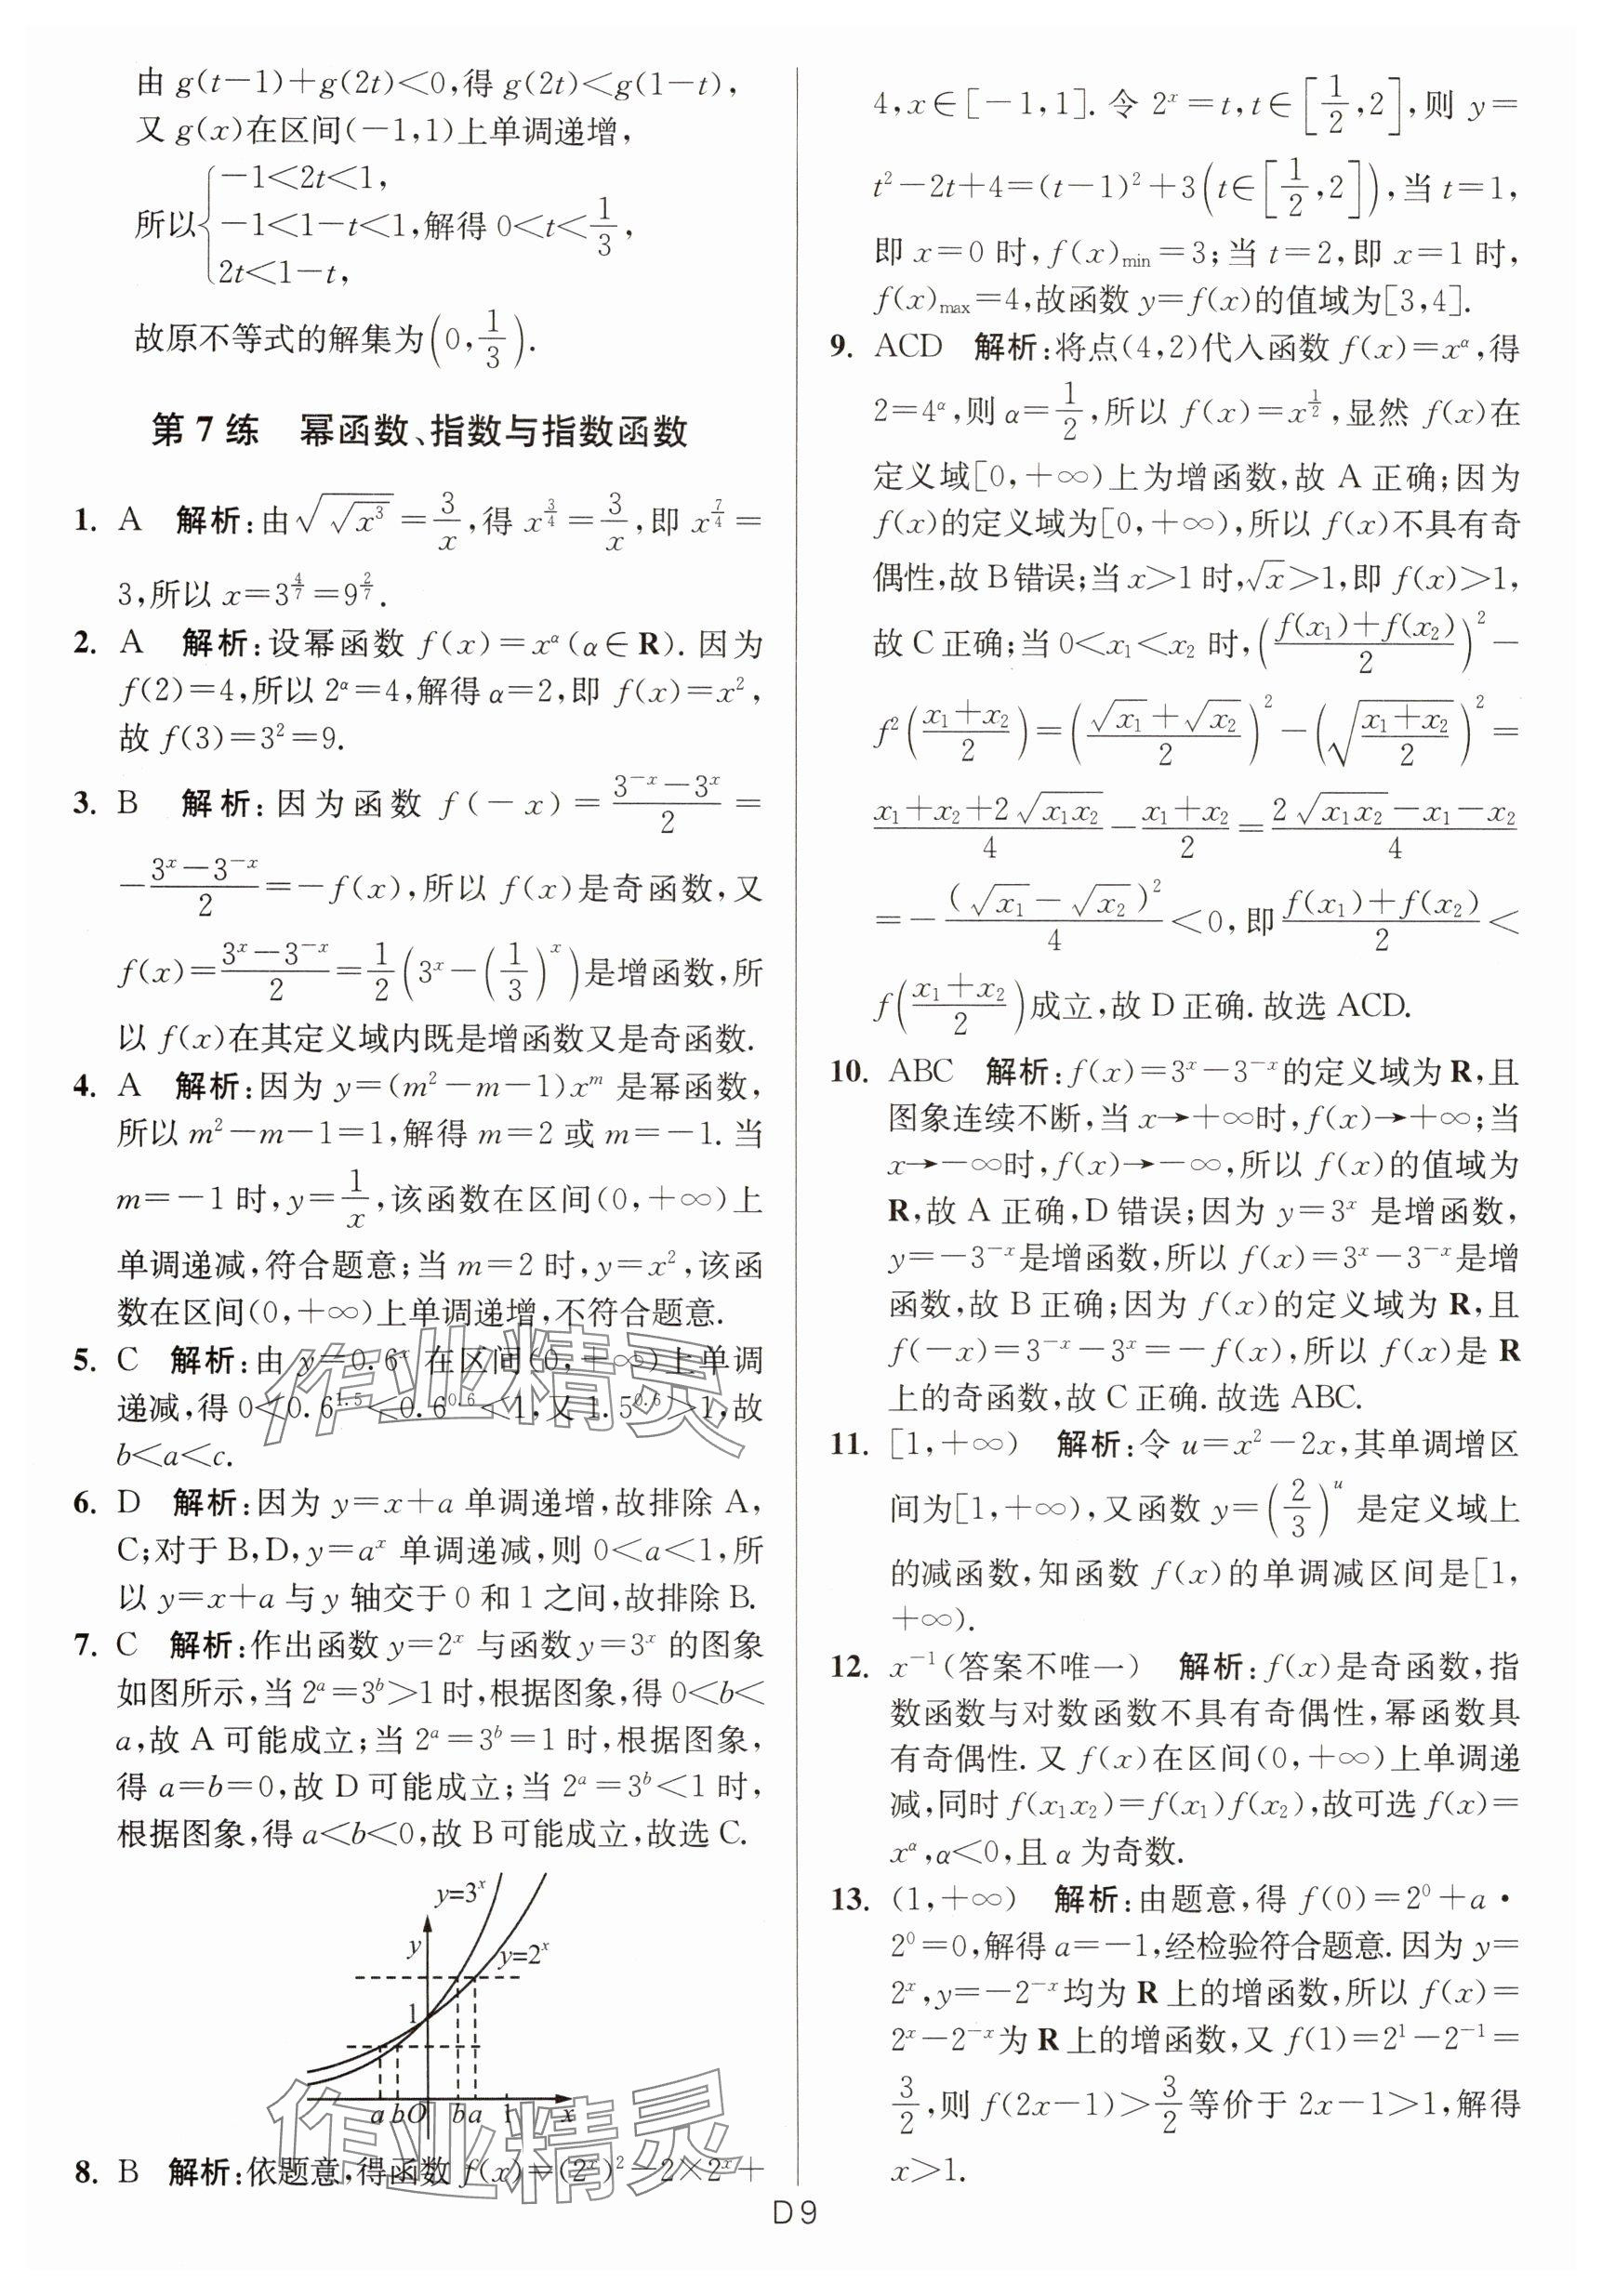 由 g(t-1)+g(2t)<0,得 g(2t)<g(1-t),
又 g(x)在区间(-1,1)上单调递增,
所以{-1<2t<1, -1<1-t<1, 2t<1-t, 解得 0<t<1/3,
故原不等式的解集为(0,1/3).
第 7 练 幂函数、指数与指数函数
1. A 解析:由√(√(x³))=3/x,得 x^(3/4)=3/x,即 x^(7/4)=
3,所以 x=3^(4/7)=9^(2/7).
2. A 解析:设幂函数 f(x)=x^α(α∈R). 因为
f(2)=4,所以 2^α=4,解得 α=2,即 f(x)=x²,
故 f(3)=3²=9.
3. B 解析:因为函数 f(-x)=(3^(-x)-3^x)/2=
-(3^x-3^(-x))/2=-f(x),所以 f(x)是奇函数,又
f(x)=(3^x-3^(-x))/2=1/2(3^x-(1/3)^x)是增函数,所
以 f(x)在其定义域内既是增函数又是奇函数.
4. A 解析:因为 y=(m²-m-1)x^m 是幂函数,
所以 m²-m-1=1,解得 m=2 或 m=-1. 当
m=-1 时,y=1/x,该函数在区间(0,+∞)上
单调递减,符合题意;当 m=2 时,y=x²,该函
数在区间(0,+∞)上单调递增,不符合题意.
5. C 解析:由 y=0.6^x 在区间(0,+∞)上单调
递减,得 0<0.6^1.5<0.6^0.6<1,又 1.5^0.6>1,故
b<a<c.
6. D 解析:因为 y=x+a 单调递增,故排除 A,
C;对于 B,D,y=a^x 单调递减,则 0<a<1,所
以 y=x+a 与 y 轴交于 0 和 1 之间,故排除 B.
7. C 解析:作出函数 y=2^x 与函数 y=3^x 的图象
如图所示,当 2^a=3^b>1 时,根据图象,得 0<b<
a,故 A 可能成立;当 2^a=3^b=1 时,根据图象,
得 a=b=0,故 D 可能成立;当 2^a=3^b<1 时,
根据图象,得 a<b<0,故 B 可能成立,故选 C.
y=3^x
y
y=2^x
1
a b O b a 1 x
8. B 解析:依题意,得函数 f(x)=(2^x)²-2×2^x+
4,x∈[-1,1]. 令 2^x=t,t∈[1/2,2],则 y=
t²-2t+4=(t-1)²+3(t∈[1/2,2]),当 t=1,
即 x=0 时,f(x)min=3;当 t=2,即 x=1 时,
f(x)max=4,故函数 y=f(x)的值域为[3,4].
9. ACD 解析:将点(4,2)代入函数 f(x)=x^α,得
2=4^α,则 α=1/2,所以 f(x)=x^(1/2),显然 f(x)在
定义域[0,+∞)上为增函数,故 A 正确;因为
f(x)的定义域为[0,+∞),所以 f(x)不具有奇
偶性,故 B 错误;当 x>1 时,√x>1,即 f(x)>1,
故 C 正确;当 0<x₁<x₂ 时,((f(x₁)+f(x₂))/2)²-
f²((x₁+x₂)/2)=((√x₁+√x₂)/2)²-(√((x₁+x₂)/2))²=
(x₁+x₂+2√(x₁x₂))/4-(x₁+x₂)/2=(2√(x₁x₂)-x₁-x₂)/4
=-(√x₁-√x₂)²/4<0,即(f(x₁)+f(x₂))/2<
f((x₁+x₂)/2)成立,故 D 正确. 故选 ACD.
10. ABC 解析:f(x)=3^x-3^(-x)的定义域为 R,且
图象连续不断,当 x→+∞时,f(x)→+∞;当
x→-∞时,f(x)→-∞,所以 f(x)的值域为
R,故 A 正确,D 错误;因为 y=3^x 是增函数,
y=-3^(-x)是增函数,所以 f(x)=3^x-3^(-x)是增
函数,故 B 正确;因为 f(x)的定义域为 R,且
f(-x)=3^(-x)-3^x=-f(x),所以 f(x)是 R
上的奇函数,故 C 正确. 故选 ABC.
11. [1,+∞) 解析:令 u=x²-2x,其单调增区
间为[1,+∞),又函数 y=(2/3)^u 是定义域上
的减函数,知函数 f(x)的单调减区间是[1,
+∞).
12. x^(-1)(答案不唯一) 解析:f(x)是奇函数,指
数函数与对数函数不具有奇偶性,幂函数具
有奇偶性. 又 f(x)在区间(0,+∞)上单调递
减,同时 f(x₁x₂)=f(x₁)f(x₂),故可选 f(x)=
x^α,α<0,且 α 为奇数.
13. (1,+∞) 解析:由题意,得 f(0)=2⁰+a·
2⁰=0,解得 a=-1,经检验符合题意. 因为 y=
2^x,y=-2^(-x)均为 R 上的增函数,所以 f(x)=
2^x-2^(-x)为 R 上的增函数,又 f(1)=2¹-2^(-1)=
3/2,则 f(2x-1)>3/2等价于 2x-1>1,解得
x>1.
D9
作业精灵
作业精灵